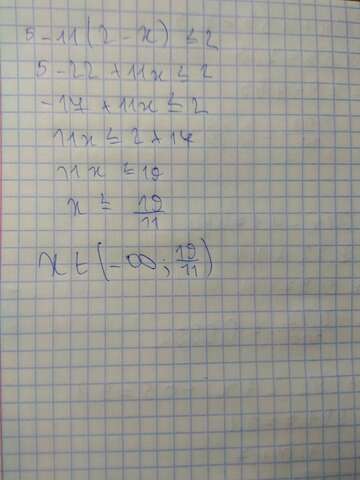 5 - 11(2 - x) ≤ 2
5 - 22 + 11x ≤ 2
-17 + 11x ≤ 2
11x ≤ 2 + 17
11x ≤ 19
x ≤ 19/11
x ∈ (-∞; 19/11)